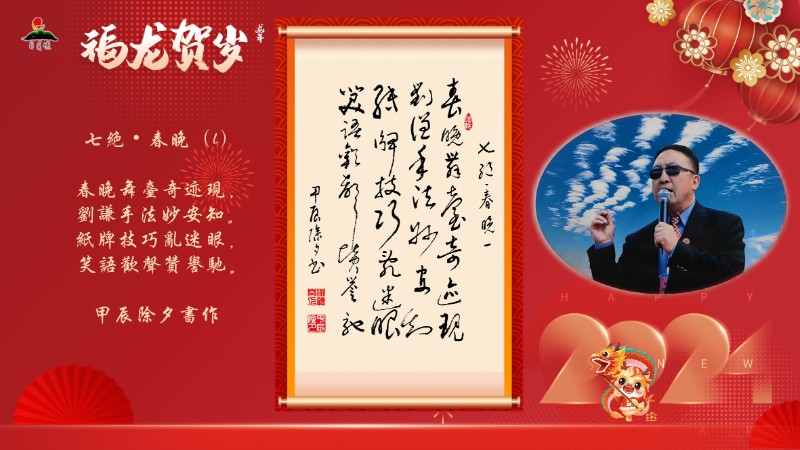 福龙贺岁
七絶·春晚（1）
春晚舞臺奇迹現，
劉謙手法妙安知。
紙牌技巧亂迷眼，
笑語歡聲贊譽馳。
甲辰除夕書作
七絶·春晚一
春晚舞臺奇迹現
劉謙手法妙安知
紙牌技巧亂迷眼
笑語歡聲贊譽馳
甲辰除夕書
HAPPY
2024
NEW